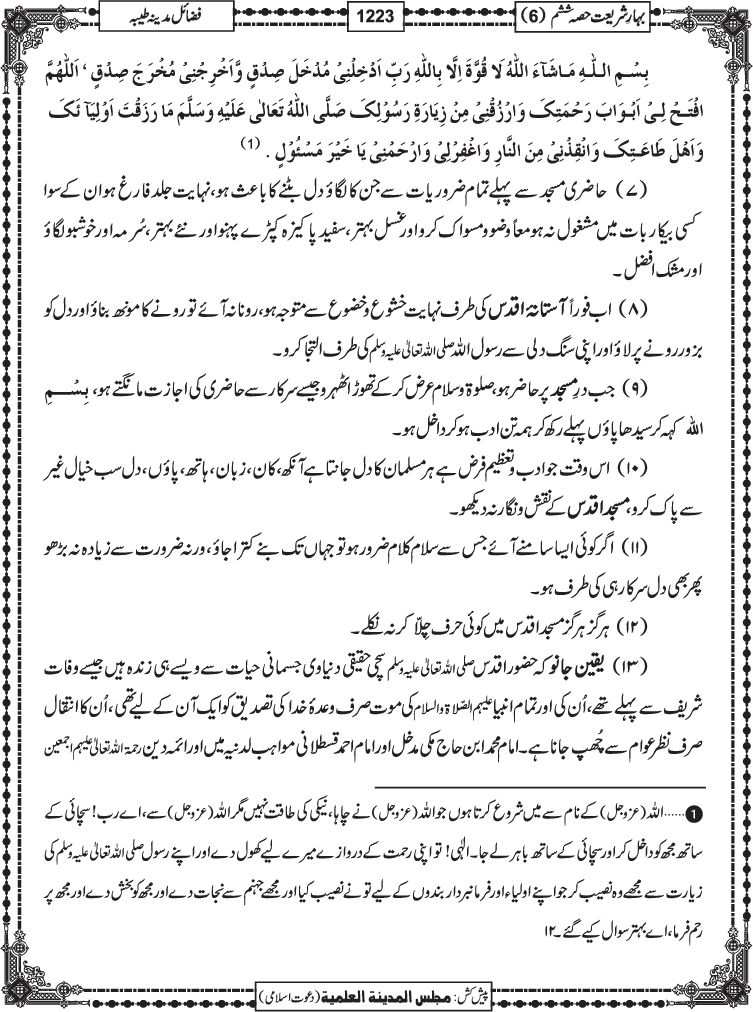 بہارِ شریعت حصہ ششم (6)
1223
فضائل مدینہ طیبہ
بِسْمِ اللّٰہِ مَاشَآءَ اللّٰہُ لَا قُوَّۃَ اِلَّا بِاللّٰہِ رَبِّ اَدْخِلْنِیْ مُدْخَلَ صِدْقٍ وَّاَخْرِجْنِیْ مُخْرَجَ صِدْقٍ ، اَللّٰھُمَّ
افْتَـحْ لِیْ اَبْوَابَ رَحْمَتِکَ وَارْزُقْنِیْ مِنْ زِیَارَۃِ رَسُوْلِکَ صَلَّی اللّٰہُ تَعَالٰی عَلَیْہِ وَسَلَّمَ مَا رَزَقْتَ اَوْلِیَآءَکَ
وَاَھْلَ طَاعَتِکَ وَانْقِذْنِیْ مِنَ النَّارِ وَاغْفِرْلِیْ وَارْحَمْنِیْ یَا خَیْرَ مَسْئُوْلٍ ۔ (1)
(۷) حاضریِ مسجد سے پہلے تمام ضروریات سے جن کا لگاؤ دل بٹنے کا باعث ہو، نہایت جلد فارغ ہو ان کے سوا
کسی بیکار بات میں مشغول نہ ہو معاً وضو و مسواک کرو اور غسل بہتر، سفید پاکیزہ کپڑے پہنو اور نئے بہتر، سُرمہ اور خوشبو لگاؤ
اور مشک افضل۔
(۸) اب فوراً آستانۂ اقدس کی طرف نہایت خشوع و خضوع سے متوجہ ہو، رونا نہ آئے تو رونے کا مونھ بناؤ اور دل کو
بزور رونے پر لاؤ اور اپنی سنگ دلی سے رسول اﷲ صلی اللہ تعالیٰ علیہ وسلم کی طرف التجا کرو۔
(۹) جب درِ مسجد پر حاضر ہو، صلوٰۃ و سلام عرض کر کے تھوڑا ٹھہرو جیسے سرکار سے حاضری کی اجازت مانگتے ہو، بِسْـــمِ
اللہ کہہ کر سیدھا پاؤں پہلے رکھ کر ہمہ تن ادب ہو کر داخل ہو۔
(۱۰) اس وقت جو ادب و تعظیم فرض ہے ہر مسلمان کا دل جانتا ہے آنکھ، کان، زبان، ہاتھ، پاؤں، دل سب خیال غیر
سے پاک کرو، مسجد اقدس کے نقش و نگار نہ دیکھو۔
(۱۱) اگر کوئی ایسا سامنے آئے جس سے سلام کلام ضرور ہو تو جہاں تک بنے کترا جاؤ، ورنہ ضرورت سے زیادہ نہ بڑھو
پھر بھی دل سرکار ہی کی طرف ہو۔
(۱۲) ہرگز ہرگز مسجد اقدس میں کوئی حرف چِلّا کر نہ نکلے۔
(۱۳) یقین جانو کہ حضور اقدس صلی اللہ تعالیٰ علیہ وسلم سچی حقیقی دنیاوی جسمانی حیات سے ویسے ہی زندہ ہیں جیسے وفات
شریف سے پہلے تھے، اُن کی اور تمام انبیا علیہم الصّلاۃ والسلام کی موت صرف وعدۂ خدا کی تصدیق کو ایک آن کے لیے تھی، اُن کا انتقال
صرف نظر عوام سے چُھپ جانا ہے۔ امام محمد ابن حاج مکی مدخل اور امام احمد قسطلانی مواہب لدنیہ میں اور ائمہ دین رحمۃ اللہ تعالیٰ علیہم اجمعین
1 ......اﷲ (عزوجل) کے نام سے میں شروع کرتا ہوں جو اﷲ (عزوجل) نے چاہا، نیکی کی طاقت نہیں مگر اﷲ (عزوجل) سے، اے رب! سچائی کے
ساتھ مجھ کو داخل کر اور سچائی کے ساتھ باہر لے جا۔ الٰہی! تو اپنی رحمت کے دروازے میرے لیے کھول دے اور اپنے رسول صلی اللہ تعالیٰ علیہ وسلم کی
زیارت سے مجھے وہ نصیب کر جو اپنے اولیاء اور فرمانبردار بندوں کے لیے تو نے نصیب کیا اور مجھے جہنم سے نجات دے اور مجھ کو بخش دے اور مجھ پر
رحم فرما، اے بہتر سوال کیے گئے۔ ۱۲
پیش کش: مجلس المدینۃ العلمیۃ (دعوتِ اسلامی)